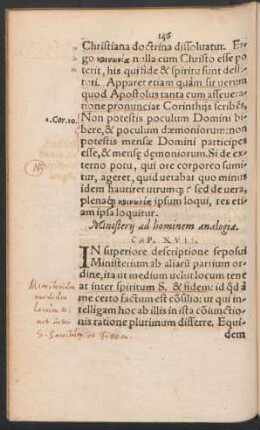 148
Christiana doctrina dissoluatur. Er-
go κοινωνία nulla cum Christo esse po
terit, his qui fide & spiritu sunt desti-
tuti. Apparet etiam quàm sit uerum
quod Apostolus tanta cum asseuera-
tione pronunciat Corinthijs scribēs,
1. Cor. 10.
Non potestis poculum Domini bi-
bere, & poculum dæmoniorum: non
potestis mensæ Domini participes
esse, & mensæ dęmoniorum. Si de ex-
terno potu, qui ore corporeo sumi-
tur, ageret, quid uetabat quo minus
idem hauriret utrumq́; sed de uera,
plenaq́; κοινωνία ipsum loqui, res eti-
am ipsa loquitur.
Ministerij ad hominem analogia.
CAP. XVII.
IN superiore descriptione seposui
Ministerium ab aliarū partium or-
dine, ita ut medium uelut locum tene
at inter spiritum S. & fidem: id q̃d à
me certo factum est cōsilio: ut qui in-
telligam hoc ab illis in ista cōiunctio-
nis ratione plurimum differre. Equi-
dem
Ministerium
medium
locum te-
net inter
S. Sanctum et Fidem.